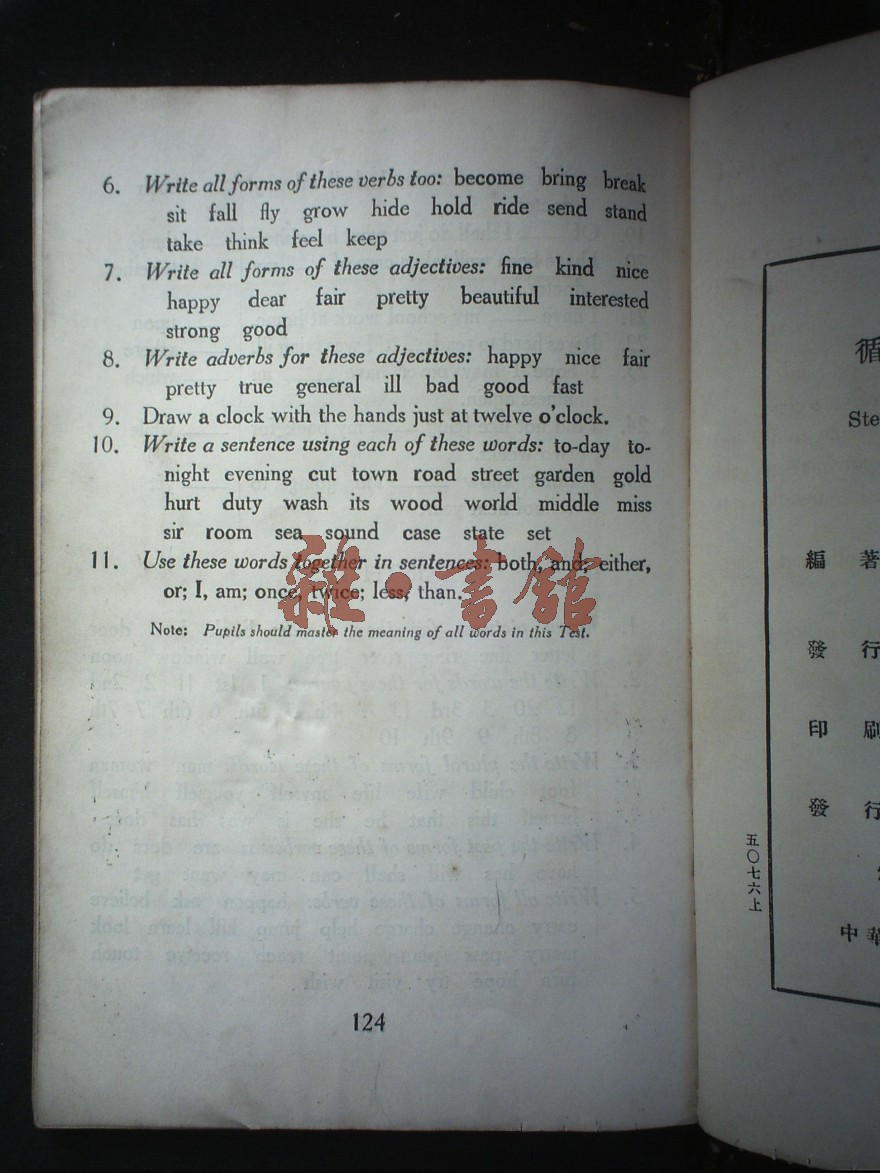 6. Write all forms of these verbs too: become bring break
sit fall fly grow hide hold ride send stand
take think feel keep
7. Write all forms of these adjectives: fine kind nice
happy dear fair pretty beautiful interested
strong good
8. Write adverbs for these adjectives: happy nice fair
pretty true general ill bad good fast
9. Draw a clock with the hands just at twelve o'clock.
10. Write a sentence using each of these words: to-day to-
night evening cut town road street garden gold
hurt duty wash its wood world middle miss
sir room sea sound case state set
11. Use these words together in sentences: both, and; either,
or; I, am; once, twice; less, than.
Note: Pupils should master the meaning of all words in this Test.
124
雜·書館
循
Ste
編著
發行
印刷
發行
五〇七六上
中華